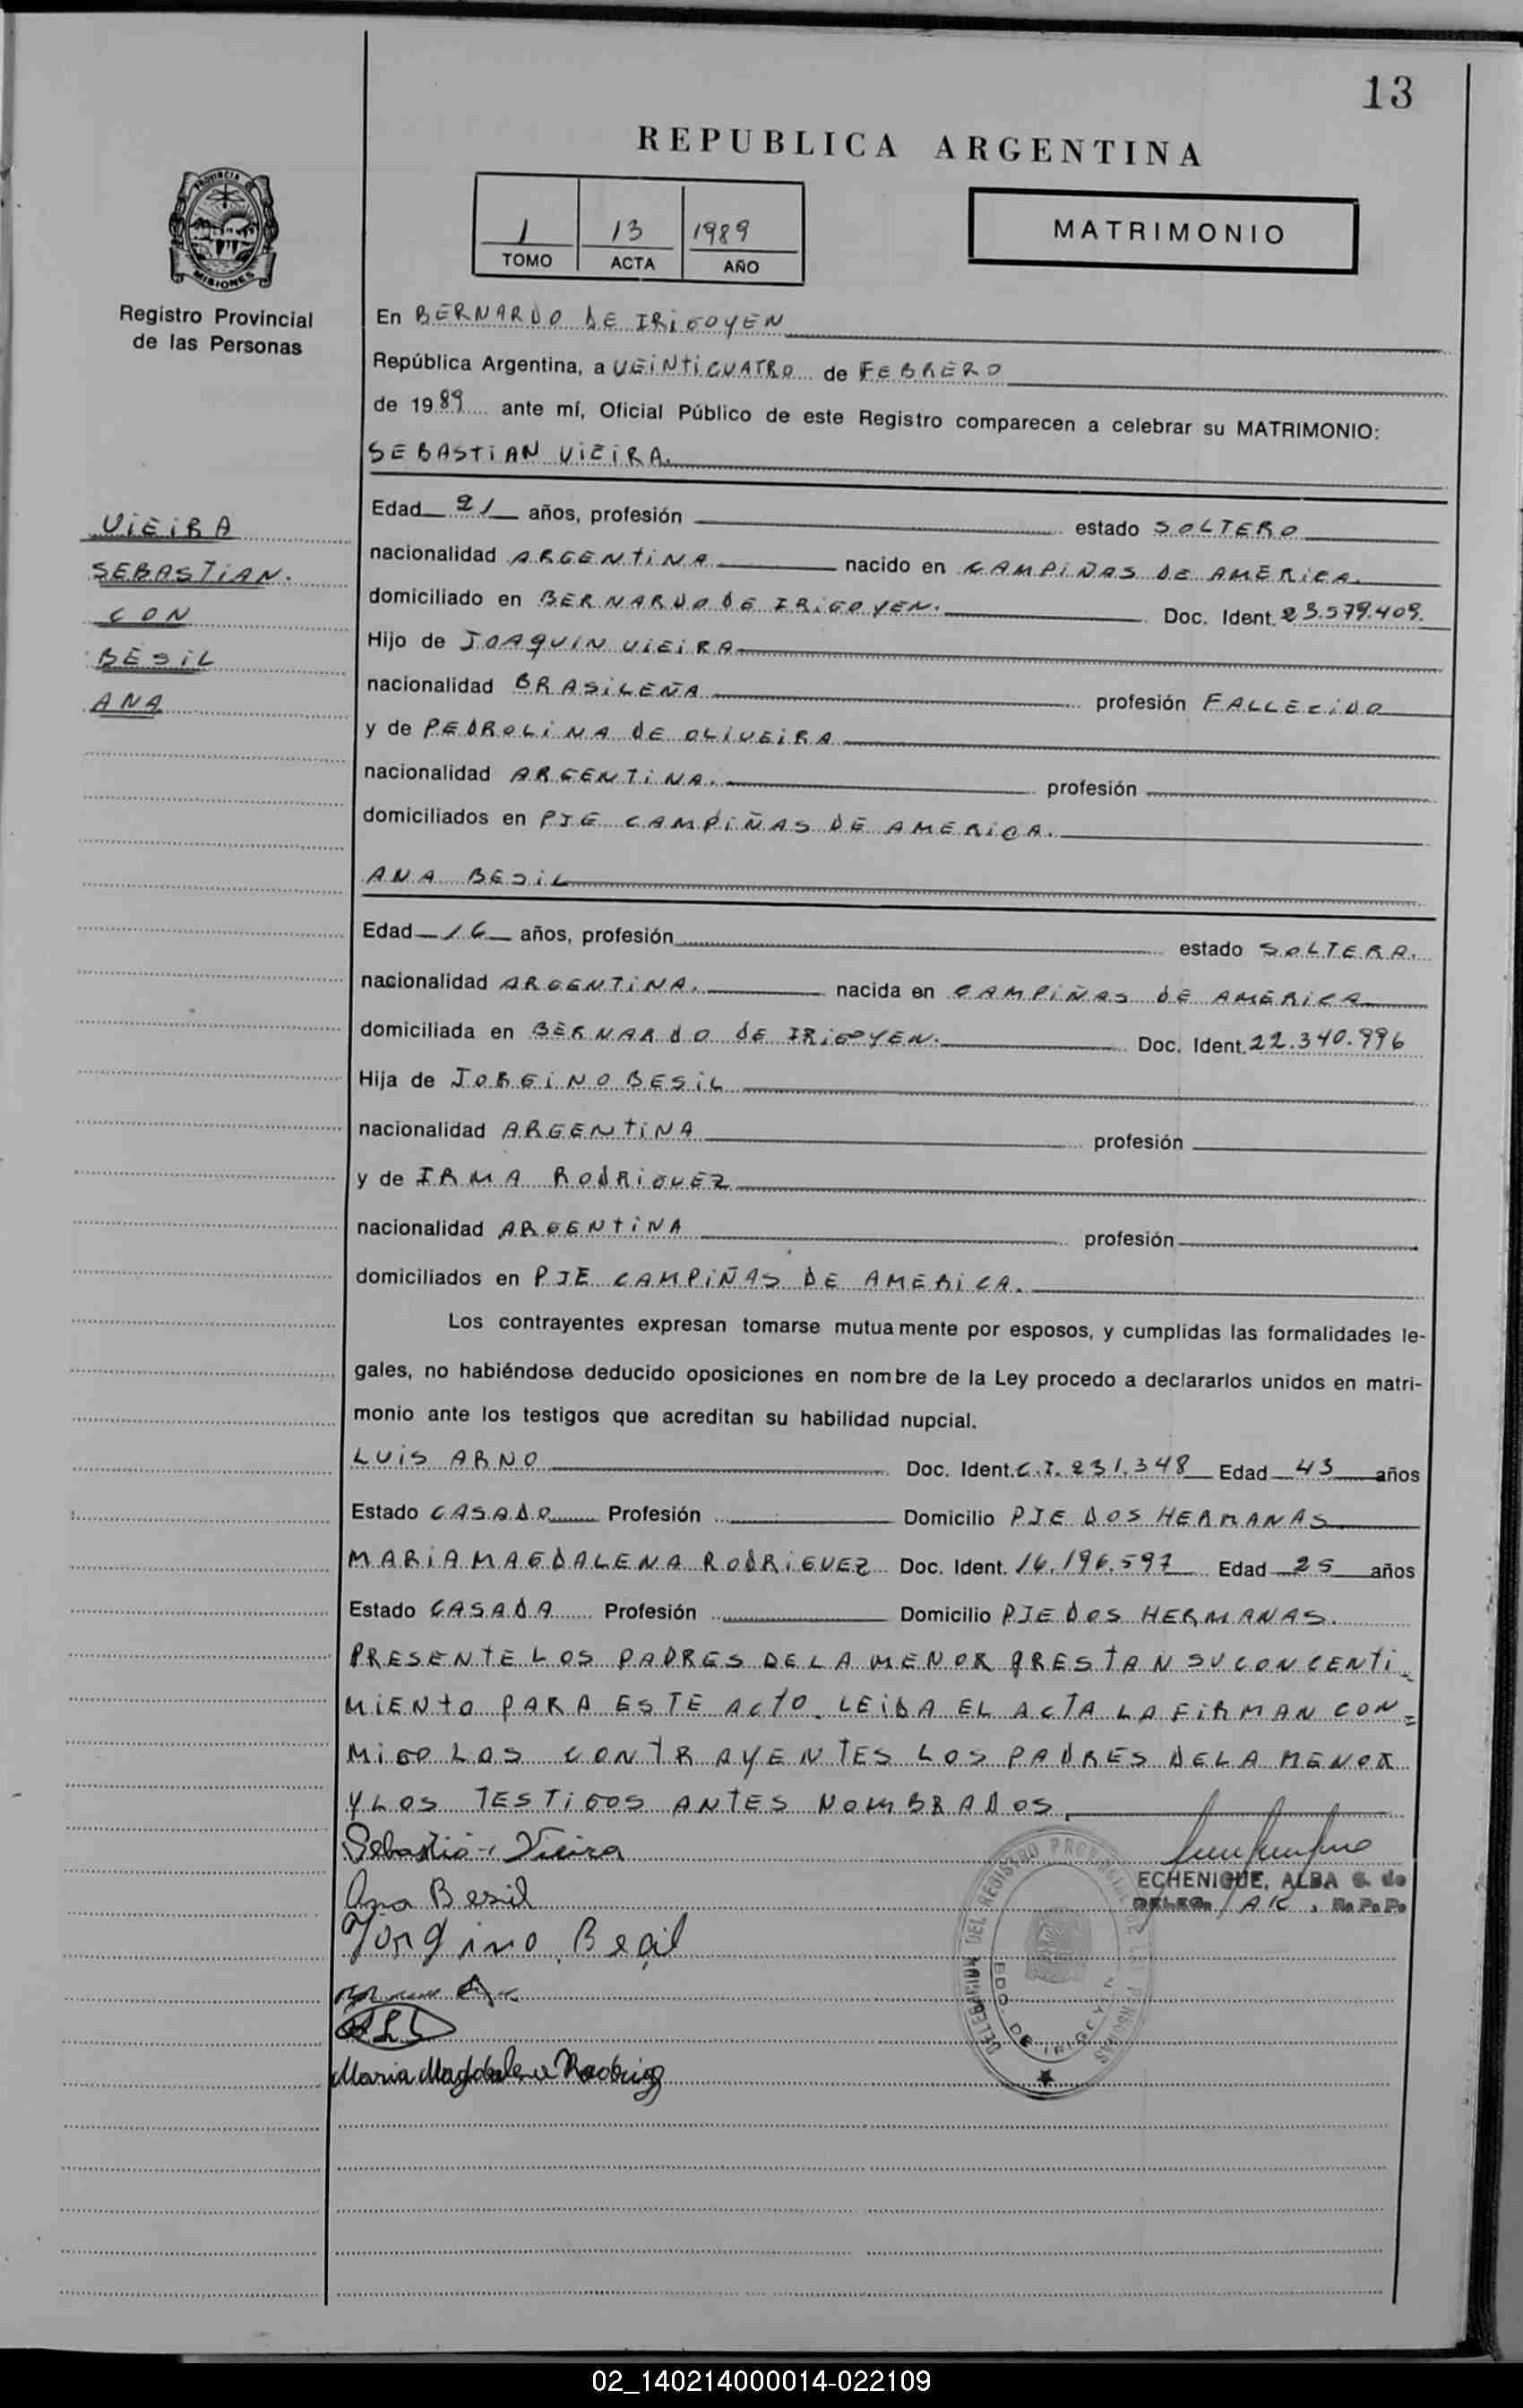 13
REPUBLICA ARGENTINA
PROVINCIA DE
MISIONES
Registro Provincial
de las Personas
1 13 1989
TOMO ACTA AÑO
MATRIMONIO
En BERNARDO DE IRIGOYEN
República Argentina, a VEINTICUATRO de FEBRERO
de 1989 ante mí, Oficial Público de este Registro comparecen a celebrar su MATRIMONIO:
SEBASTIAN VIEIRA.
VIEIRA
SEBASTIAN.
CON
BESIL
ANA
Edad 21 años, profesión estado SOLTERO
nacionalidad ARGENTINA nacido en CAMPIÑAS DE AMERICA.
domiciliado en BERNARDO DE IRIGOYEN. Doc. Ident. 23.579.409.
Hijo de JOAQUIN VIEIRA
nacionalidad BRASILEÑA profesión FALLECIDO
y de PEDROLINA DE OLIVEIRA
nacionalidad ARGENTINA. profesión
domiciliados en PJE CAMPIÑAS DE AMERICA.
ANA BESIL
Edad 16 años, profesión estado SOLTERA.
nacionalidad ARGENTINA. nacida en CAMPIÑAS DE AMERICA
domiciliada en BERNARDO DE IRIGOYEN. Doc. Ident. 22.340.996
Hija de JORGINO BESIL
nacionalidad ARGENTINA profesión
y de IRMA RODRIGUEZ
nacionalidad ARGENTINA profesión
domiciliados en PJE CAMPIÑAS DE AMERICA.
Los contrayentes expresan tomarse mutuamente por esposos, y cumplidas las formalidades le-
gales, no habiéndose deducido oposiciones en nombre de la Ley procedo a declararlos unidos en matri-
monio ante los testigos que acreditan su habilidad nupcial.
LUIS ARNO Doc. Ident. C.I. 231.348 Edad 43 años
Estado CASADO Profesión Domicilio PJE DOS HERMANAS
MARIA MAGDALENA RODRIGUEZ Doc. Ident. 16.196.597 Edad 25 años
Estado CASADA Profesión Domicilio PJE DOS HERMANAS.
PRESENTE LOS PADRES DE LA MENOR PRESTAN SU CONCENTI-
MIENTO PARA ESTE ACTO. LEIDA EL ACTA LA FIRMAN CON=
MIGO LOS CONTRAYENTES LOS PADRES DE LA MENOR
Y LOS TESTIGOS ANTES NOMBRADOS.
Ana Besil
ECHENIQUE, ALBA G. de
DELEG. R. P. P.
DELEGACION DEL REGISTRO PROVINCIAL DE LAS PERSONAS
BDO. DE IRIGOYEN
Maria Magdalena
02_140214000014-022109